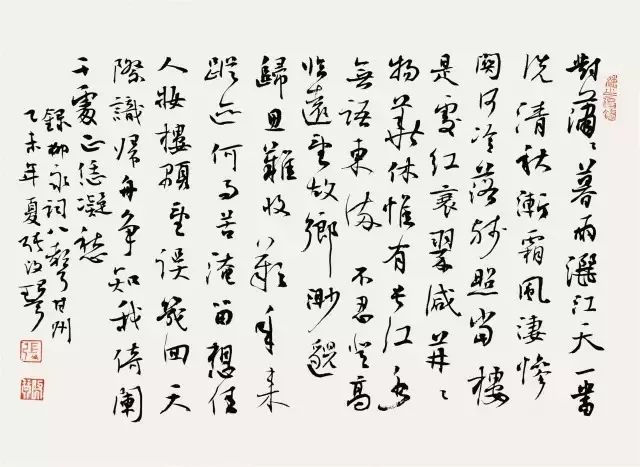 對瀟〻暮雨灑江天一番
洗清秋漸霜風淒慘
關河冷落殘照當樓
是處紅衰翠減苒〻
物華休惟有長江水
無語東流 不忍登高
臨遠望故鄉渺邈
歸思難收歎年來
蹤迹何事苦淹留想佳
人妝樓顒望誤幾回天
際識歸舟爭知我倚闌
干處正恁凝愁
錄柳永詞八聲甘州
乙未年夏張改琴